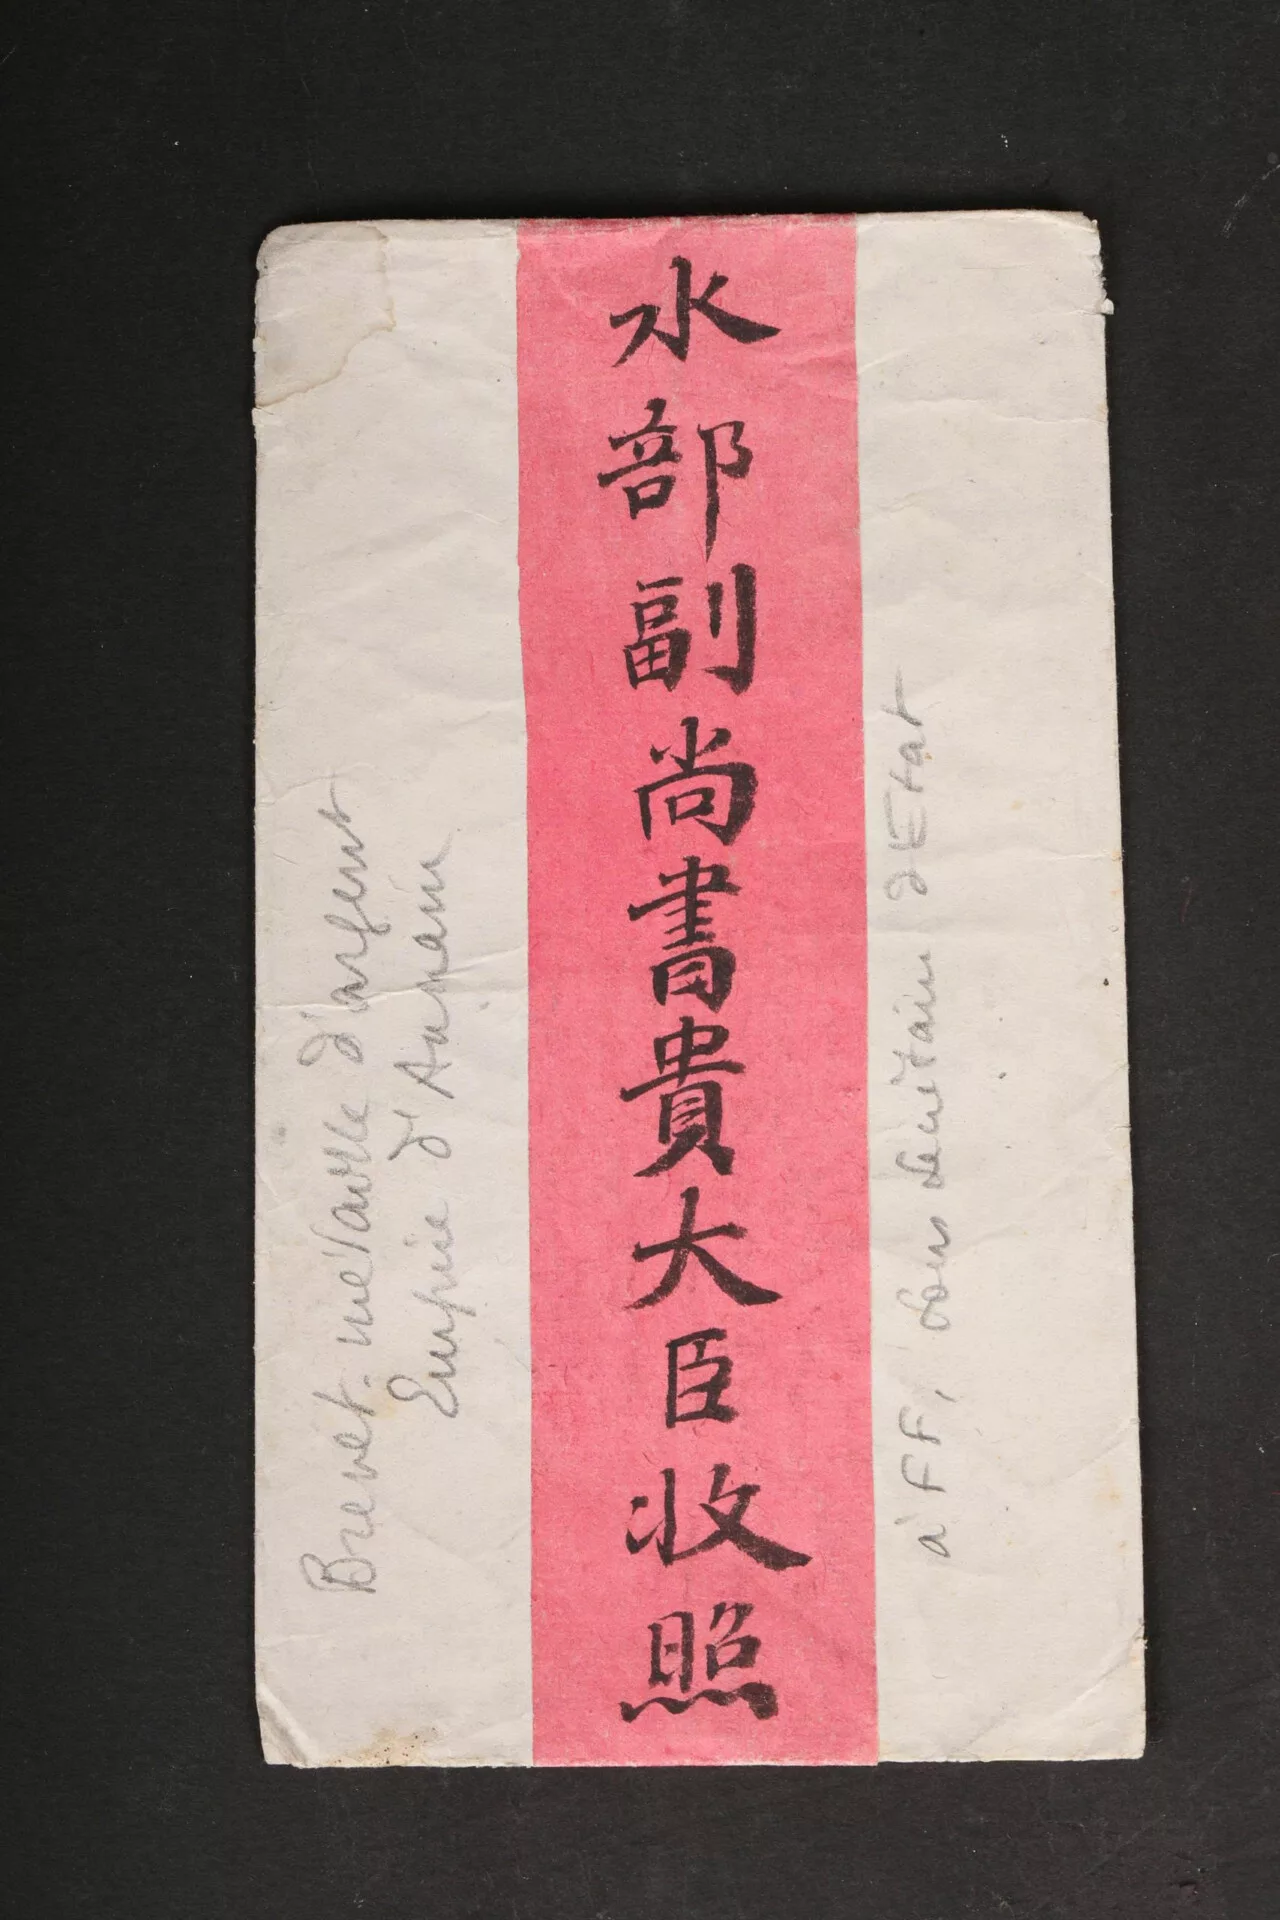 水部副尚書貴大臣收照
Brevet. métaille d'argent
Empire d'Annam
à FF, Sous Secrétaire d'Etat